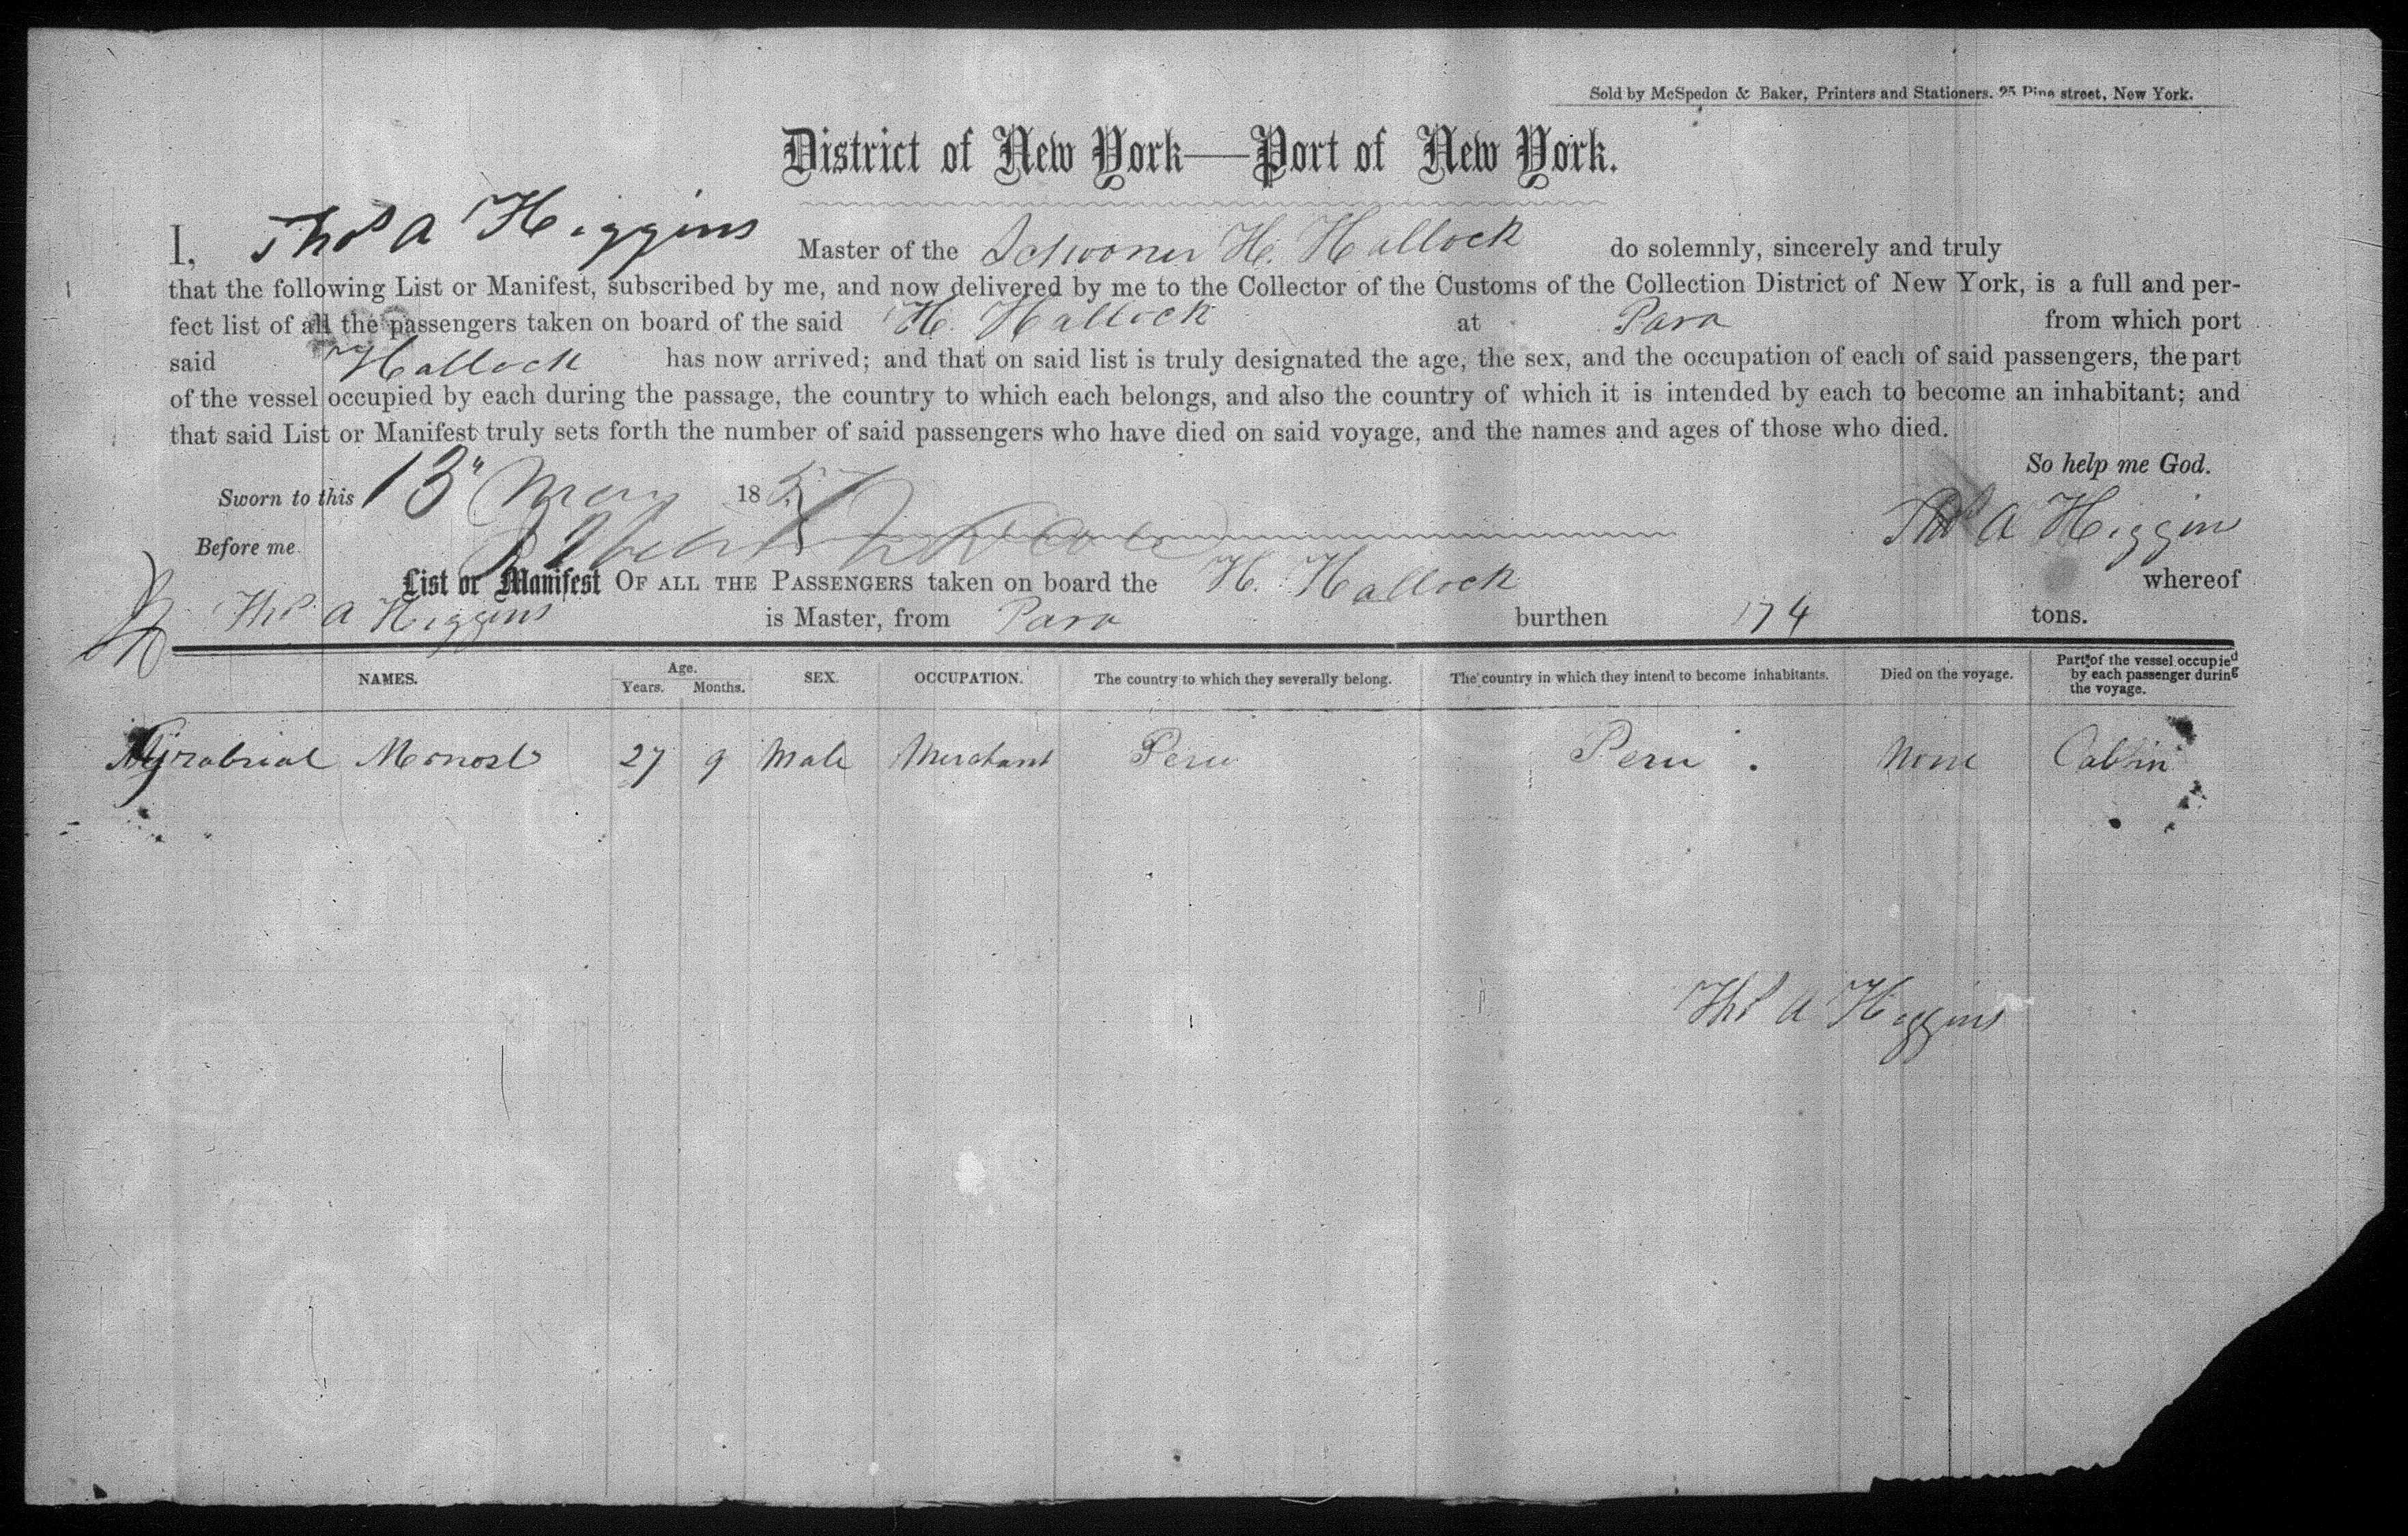 Sold by McSpedon & Baker, Printers and Stationers. 25 Pine street, New York.
District of New York—Port of New York.
I, Thos A Higgins Master of the Schooner H. Hallock do solemnly, sincerely and truly
that the following List or Manifest, subscribed by me, and now delivered by me to the Collector of the Customs of the Collection District of New York, is a full and per-
fect list of all the passengers taken on board of the said H. Hallock at Para from which port
said Hallock has now arrived; and that on said list is truly designated the age, the sex, and the occupation of each of said passengers, the part
of the vessel occupied by each during the passage, the country to which each belongs, and also the country of which it is intended by each to become an inhabitant; and
that said List or Manifest truly sets forth the number of said passengers who have died on said voyage, and the names and ages of those who died.
So help me God.
Sworn to this 13" May 1857
Thos A Higgins
Before me
List or Manifest OF ALL THE PASSENGERS taken on board the H. Hallock whereof
Thos A Higgins is Master, from Para burthen 174 tons.
NAMES. Age. Years. Months. SEX. OCCUPATION. The country to which they severally belong. The country in which they intend to become inhabitants. Died on the voyage. Part of the vessel occupied by each passenger during the voyage.
27 9 Male Merchant Peru Peru. None Cabbin
Thos A Higgins